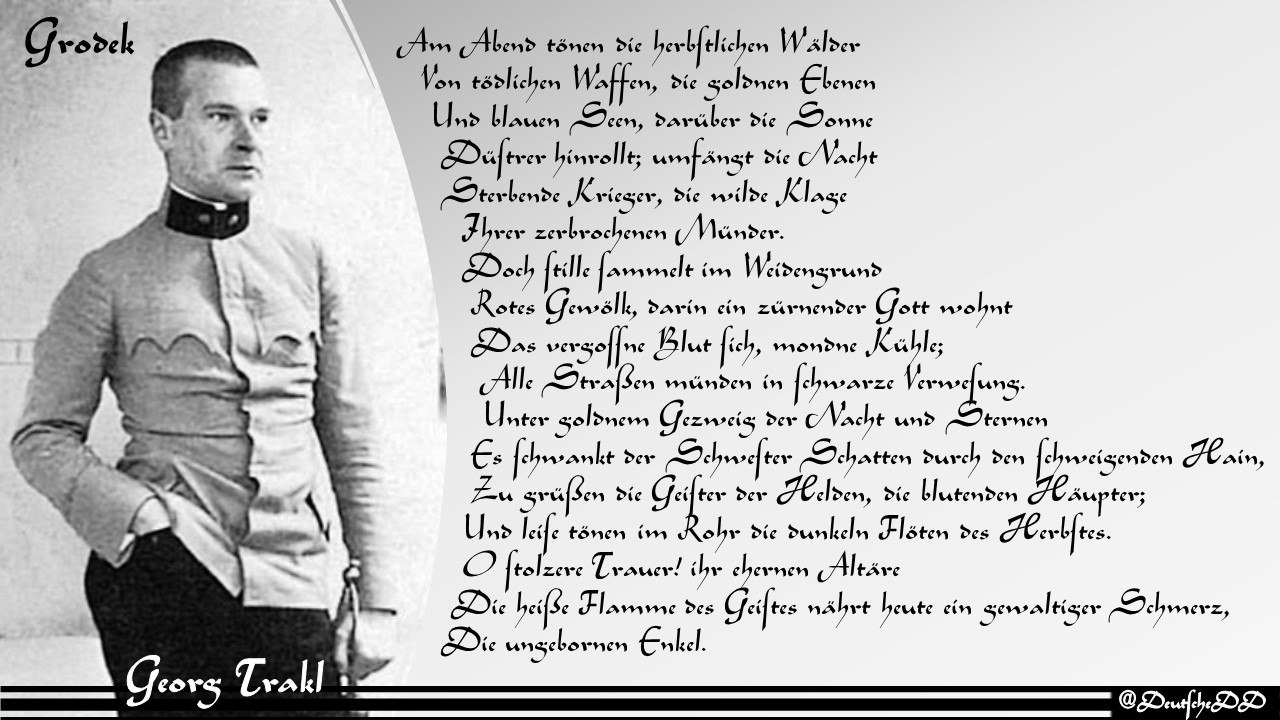 Grodek
Am Abend tönen die herbſtlichen Wälder
Von tödlichen Waffen, die goldnen Ebenen
Und blauen Seen, darüber die Sonne
Düſtrer hinrollt; umfängt die Nacht
Sterbende Krieger, die wilde Klage
Ihrer zerbrochenen Münder.
Doch ſtille ſammelt im Weidengrund
Rotes Gewölk, darin ein zürnender Gott wohnt
Das vergoſſne Blut ſich, mondne Kühle;
Alle Straßen münden in ſchwarze Verweſung.
Unter goldnem Gezweig der Nacht und Sternen
Es ſchwankt der Schweſter Schatten durch den ſchweigenden Hain,
Zu grüßen die Geiſter der Helden, die blutenden Häupter;
Und leiſe tönen im Rohr die dunkeln Flöten des Herbſtes.
O ſtolzere Trauer! ihr ehernen Altäre
Die heiße Flamme des Geiſtes nährt heute ein gewaltiger Schmerz,
Die ungebornen Enkel.
Georg Trakl
@DeutſcheDD